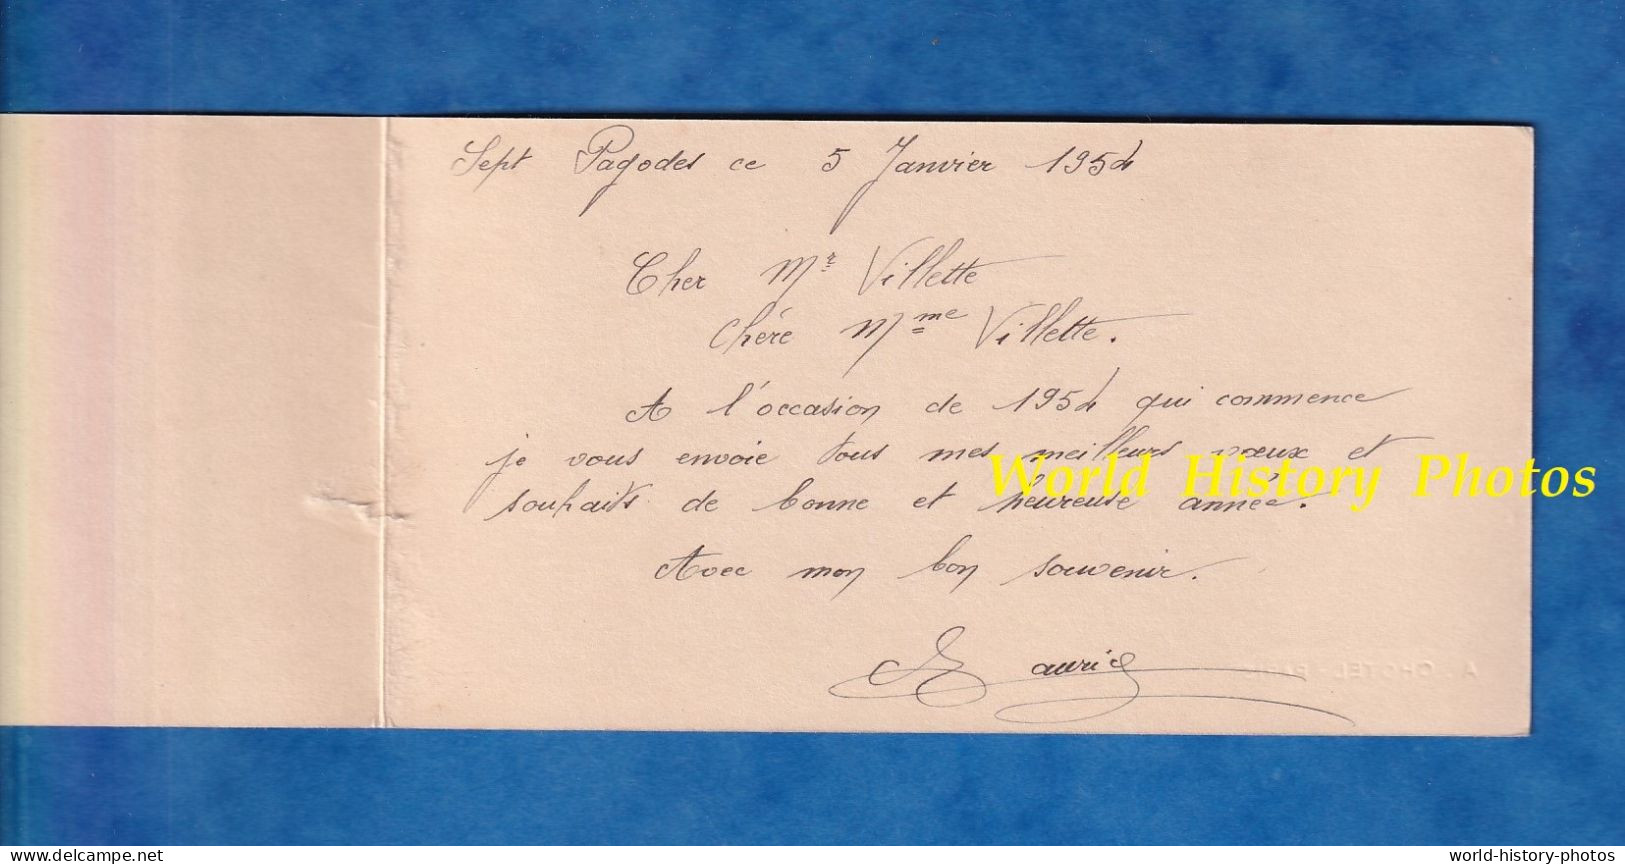 Sept Pagodes ce 5 Janvier 1954
Cher Mr Villette
Chère Mme Villette.
A l'occasion de 1954 qui commence
je vous envoie tous mes meilleurs vœux et
World History Photos
souhaits de bonne et heureuse année.
Avec mon bon souvenir.
world-history-photos